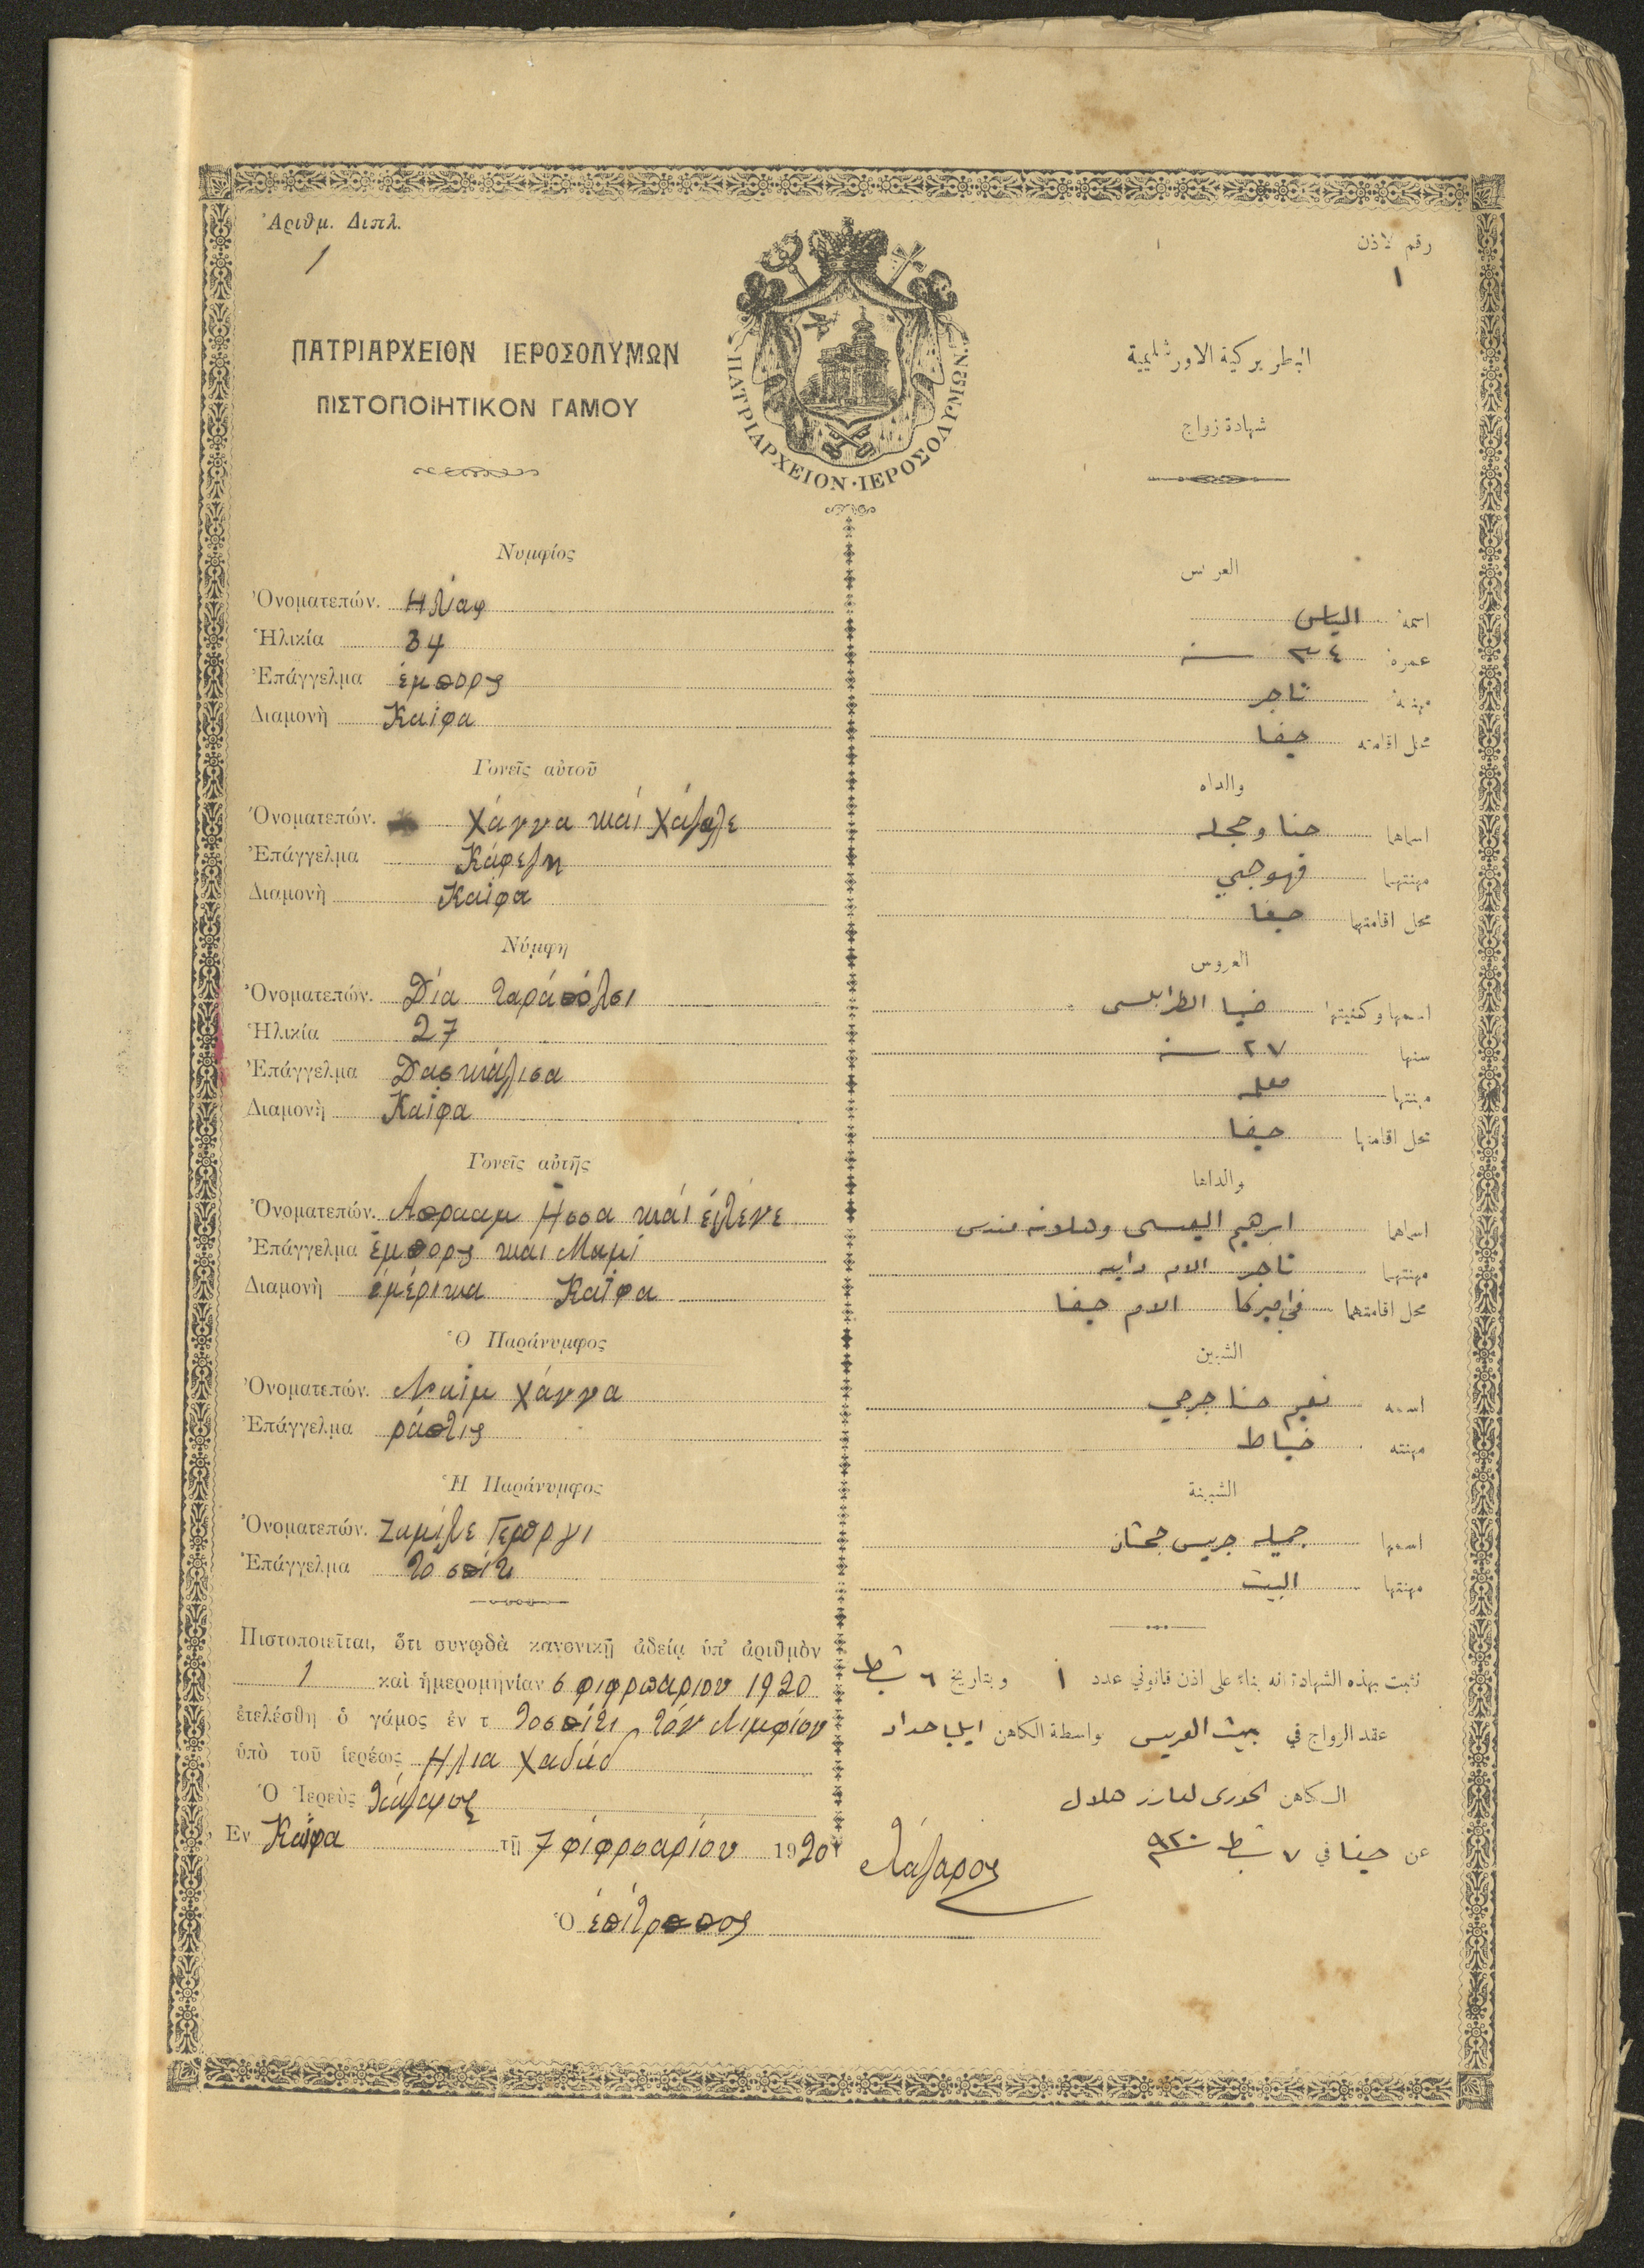 Ἀριθμ. Διπλ.
1
رقم الاذن
١
ΠΑΤΡΙΑΡΧΕΙΟΝ ΙΕΡΟΣΟΛΥΜΩΝ
ΠΙΣΤΟΠΟΙΗΤΙΚΟΝ ΓΑΜΟΥ
ΠΑΤΡΙΑΡΧΕΙΟΝ·ΙΕΡΟΣΟΛΥΜΩΝ
البطريركية الاورشليمية
شهادة زواج
Νυμφίος
Ὀνοματεπών. Ηλίας
Ἡλικία 34
Ἐπάγγελμα έμπορς
Διαμονὴ Καίφα
Γονεῖς αὐτοῦ
Ὀνοματεπών. Χάννα και Χάζλε
Ἐπάγγελμα Κάφεζη
Διαμονὴ Καίφα
Νύμφη
Ὀνοματεπών. Δία ταράπόλσι
Ἡλικία 27
Ἐπάγγελμα Δασκάλισα
Διαμονὴ Καίφα
Γονεῖς αὐτῆς
Ὀνοματεπών. Απρααμ Ησσα και έλένε
Ἐπάγγελμα έμπορς και Μαμί
Διαμονὴ έμέρικα Καίφα
Ὁ Παράνυμφος
Ὀνοματεπών. Ναίμ χάννα
Ἐπάγγελμα ράπτις
Ἡ Παράνυμφος
Ὀνοματεπών. Ζαμίλε Γεώργι
Ἐπάγγελμα το σπίτι
Πιστοποιεῖται, ὅτι συνῳδὰ κανονικῇ ἀδείᾳ ὑπ' ἀριθμὸν
1 καὶ ἡμερομηνίαν 6 φιφρπαριου 1920
ἐτελέσθη ὁ γάμος ἐν τ τοσπίτι τόν Νιμφίον
ὑπὸ τοῦ ἱερέως Ηλια χαδάδ
Ὁ Ἱερεὺς Λάζαρος
Εν Καίφα τῇ 7 φίφρουαρίου 1920
Λάζαρος
Ὁ έπίτροπος
العريس
اسمه الياس
عمره ٣٤ سنة
مهنته تاجر
محل اقامته حيفا
والداه
اسماهما حنا وحجله
مهنتهما قهوجي
محل اقامتهما حيفا
العروس
اسمها وكنيتها ضيا الطرابلسي
سنها ٢٧ سنة
مهنتها معلمه
محل اقامتها حيفا
والداها
اسماهما ابرهيم العيسى وهلانه
مهنتهما تاجر الام دايه
محل اقامتهما في اميركا الام حيفا
الشبين
اسمه نعيم حنا جرجي
مهنته خياط
الشبينة
اسمها جميله جريس جحشان
مهنتها البيت
نثبت بهذه الشهادة انه بناء على اذن قانوني عدد ١ وبتاريخ ٦ شباط
عقد الزواج في بيت العريس بواسطة الكاهن ايليا حداد
الكاهن الخوري لعازر هلال
عن حيفا في ٧ شباط ٩٢٠